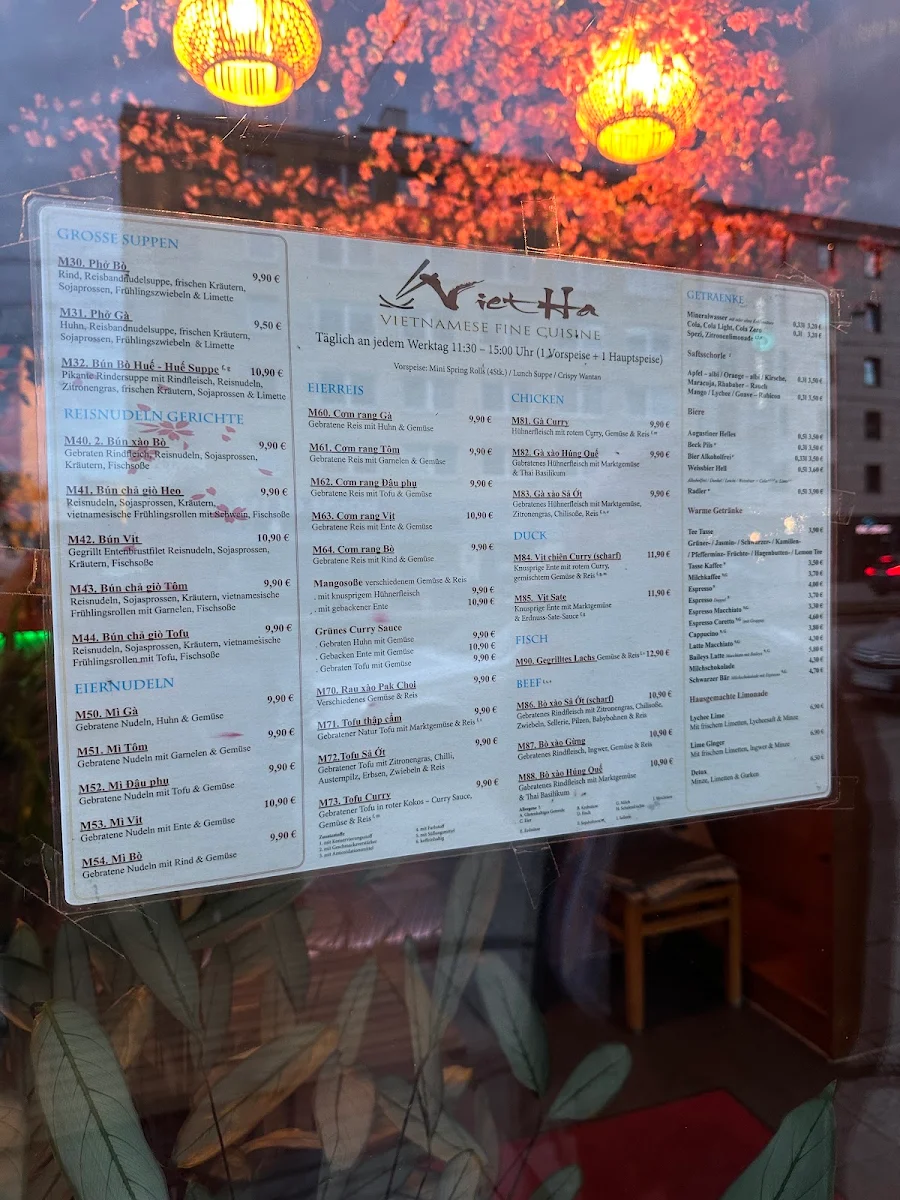 GROSSE SUPPEN
M30. Phở Bò
9,90 €
Rind, Reisbandnudelsuppe, frischen Kräutern,
Sojaprossen, Frühlingszwiebeln & Limette
M31. Phở Gà
9,50 €
Huhn, Reisbandnudelsuppe, frischen Kräutern,
Sojaprossen, Frühlingszwiebeln & Limette
M32. Bún Bò Huế - Huế Suppe
10,90 €
Pikante Rindersuppe mit Rindfleisch, Reisnudeln,
Zitronengras, frischen Kräutern, Sojaprossen & Limette
REISNUDELN GERICHTE
M40. 2. Bún xào Bò
9,90 €
Gebraten Rindfleich, Reisnudeln, Sojasprossen,
Kräutern, Fischsoße
M41. Bún chả giò Heo
9,90 €
Reisnudeln, Sojasprossen, Kräutern,
vietnamesische Frühlingsrollen mit Schwein, Fischsoße
M42. Bún Vịt
10,90 €
Gegrillt Entenbrustfilet Reisnudeln, Sojasprossen,
Kräutern, Fischsoße
M43. Bún chả giò Tôm
9,90 €
Reisnudeln, Sojasprossen, Kräutern, vietnamesische
Frühlingsrollen mit Garnelen, Fischsoße
M44. Bún chả giò Tofu
9,90 €
Reisnudeln, Sojasprossen, Kräutern, vietnamesische
Frühlingsrollen mit Tofu, Fischsoße
EIERNUDELN
M50. Mì Gà
9,90 €
Gebratene Nudeln, Huhn & Gemüse
M51. Mì Tôm
9,90 €
Gebratene Nudeln mit Garnelen & Gemüse
M52. Mì Đậu phụ
9,90 €
Gebratene Nudeln mit Tofu & Gemüse
M53. Mì Vịt
10,90 €
Gebratene Nudeln mit Ente & Gemüse
M54. Mì Bò
9,90 €
Gebratene Nudeln mit Rind & Gemüse
VietHa
VIETNAMESE FINE CUISINE
Täglich an jedem Werktag 11:30 – 15:00 Uhr (1 Vorspeise + 1 Hauptspeise)
Vorspeise: Mini Spring Rolls (4Stk.) / Lunch Suppe / Crispy Wantan
EIERREIS
M60. Cơm rang Gà
9,90 €
Gebratene Reis mit Huhn & Gemüse
M61. Cơm rang Tôm
9,90 €
Gebratene Reis mit Garnelen & Gemüse
M62. Cơm rang Đậu phụ
9,90 €
Gebratene Reis mit Tofu & Gemüse
M63. Cơm rang Vịt
10,90 €
Gebratene Reis mit Ente & Gemüse
M64. Cơm rang Bò
9,90 €
Gebratene Reis mit Rind & Gemüse
Mangosoße verschiedenem Gemüse & Reis
. mit knusprigem Hühnerfleisch 9,90 €
. mit gebackener Ente 10,90 €
Grünes Curry Sauce
. Gebraten Huhn mit Gemüse 9,90 €
. Gebacken Ente mit Gemüse 10,90 €
. Gebraten Tofu mit Gemüse 9,90 €
M70. Rau xào Pak Choi
9,90 €
Verschiedenes Gemüse & Reis
M71. Tofu thập cẩm
9,90 €
Gebratener Natur Tofu mit Marktgemüse & Reis
M72.Tofu Sả Ớt
9,90 €
Gebratener Tofu mit Zitronengras, Chilli,
Austernpilz, Erbsen, Zwiebeln & Reis
M73. Tofu Curry
9,90 €
Gebratener Tofu in roter Kokos - Curry Sauce,
Gemüse & Reis
Zusatzstoffe
1. mit Konservierungsstoff
2. mit Geschmacksverstärker
3. mit Antioxidationsmittel
4. mit Farbstoff
5. mit Süßungsmittel
6. koffeinhaltig
CHICKEN
M81. Gà Curry
9,90 €
Hühnerfleisch mit rotem Curry, Gemüse & Reis
M82. Gà xào Húng Quế
9,90 €
Gabratenes Hühnerfleisch mit Marktgemüse
& Thai Basilikum
M83. Gà xào Sả Ớt
9,90 €
Gebratenes Hühnerfleisch mit Marktgemüse,
Zitronengras, Chilisoße, Reis
DUCK
M84. Vịt chiên Curry (scharf)
11,90 €
Knusprige Ente mit rotem Curry,
gemischtem Gemüse & Reis
M85. Vịt Sate
11,90 €
Knusprige Ente mit Marktgemüse
& Erdnuss-Sate-Sauce
FISCH
M90. Gegrilltes Lachs Gemüse & Reis 12,90 €
BEEF
M86. Bò xào Sả Ớt (scharf)
10,90 €
Gebratenes Rindfleisch mit Zitrongras, Chilisoße,
Zwiebeln, Sellerie, Pilzen, Babybohnen & Reis
M87. Bò xào Gừng
10,90 €
Gebratenes Rindfleisch, Ingwer, Gemüse & Reis
M88. Bò xào Húng Quế
10,90 €
Gabratenes Rindfleisch mit Marktgemüse
& Thai Basilikum
GETRAENKE
Mineralwasser
0,33l 3,20 €
Cola, Cola Light, Cola Zero
0,3l 3,20 €
Spezi, Zitronenlimonade
Saftsschorle
Apfel – albi / Orange – albi / Kirsche,
0,3l 3,50 €
Maracuja, Rhababer – Rauch
Mango / Lychee / Guave – Rubicon
0,3l 3,50 €
Biere
Augustiner Helles
0,5l 3,50 €
Beck Pils
0,3l 3,50 €
Bier Alkoholfrei
0,33l 3,50 €
Weissbier Hell
0,5l 3,60 €
Radler
0,5l 3,90 €
Warme Getränke
Tee Tasse
3,90 €
Grüner- / Jasmin- / Schwarzer- / Kamillen-
/ Pfefferminz- Früchte- / Hagenbutten- / Lemon Tee
Tasse Kaffee
3,50 €
Milchkaffee
3,70 €
Espresso
Espresso
Espresso Macchiato
Espresso Coretto
Cappucino
Latte Macchiato
Baileys Latte
Milchschokolade
Schwarzer Bär
4,70 €
Hausgemachte Limonade
Lychee Lime
Mit frischen Limetten, Lycheesaft & Minze
Lime Ginger
Mit frischen Limetten, Ingwer & Minze
Detox
6,50 €
Minze, Limetten & Gurken